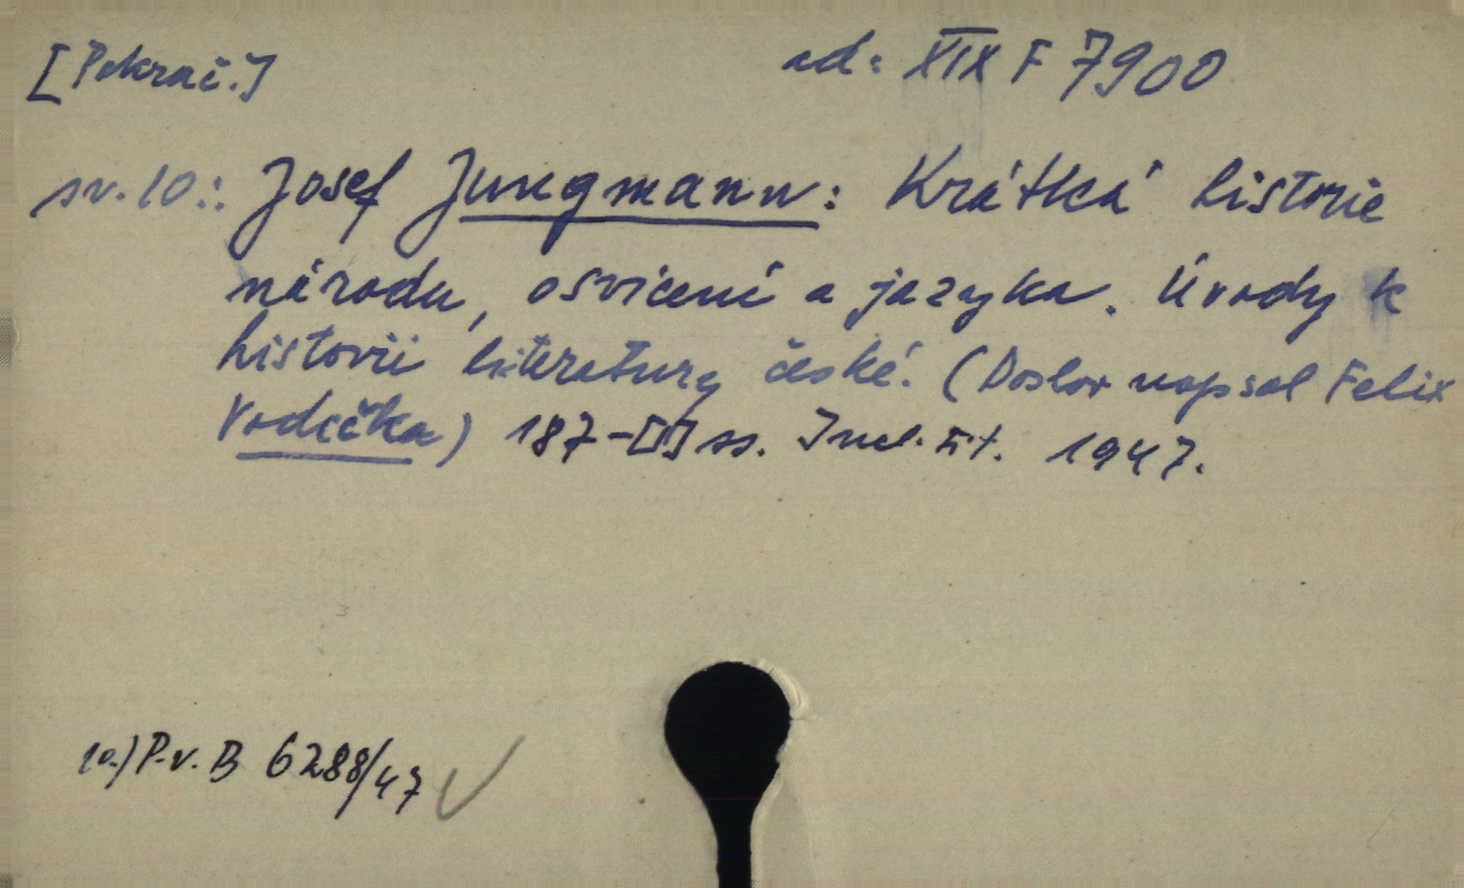 [Pokrač.] ad: XIX F 7900
sv. 10.: Josef Jungmann: Krátká historie
národu, osvícení a jazyka. Úvody k
historii literatury české. (Doslov napsal Felix
Vodička) 187-[I] ss. Incl. tit. 1947.
10.) P.v. B 6288/47 ✓